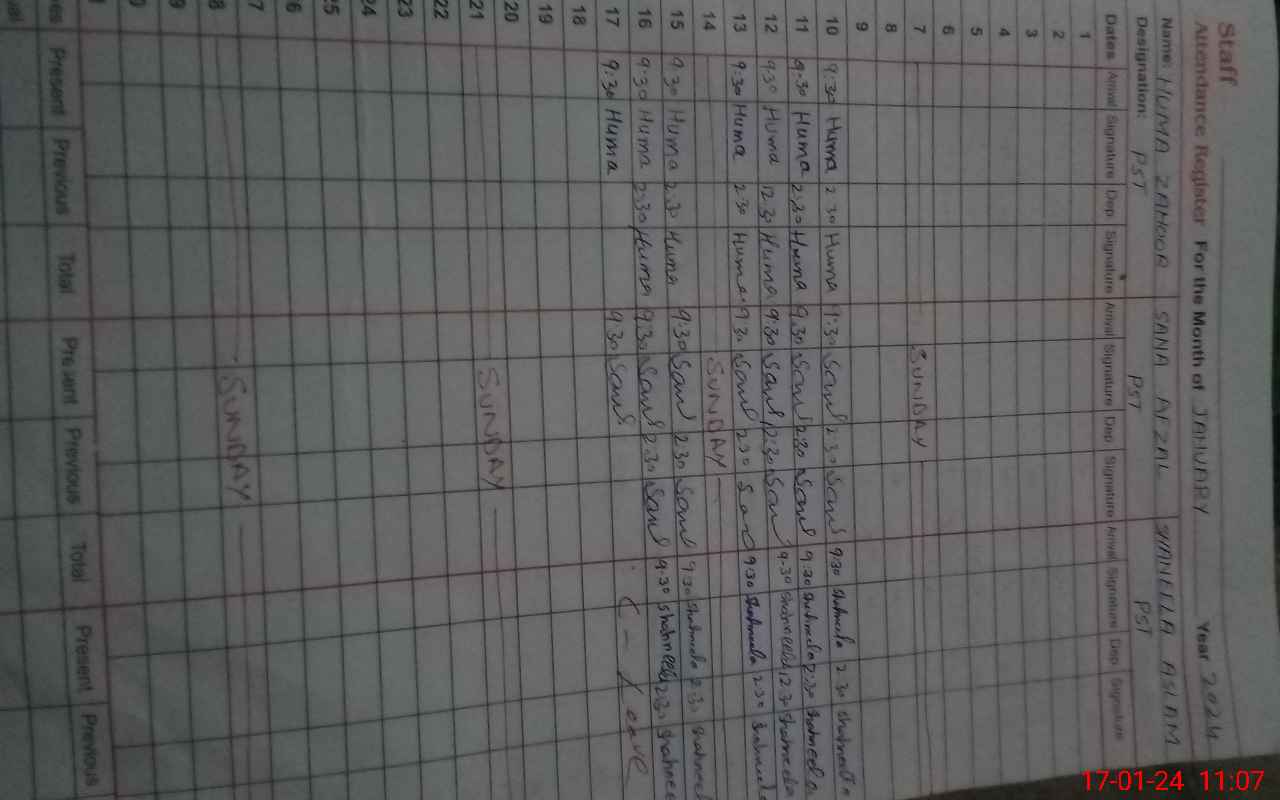 Staff
Attendance Register For the Month of JANUARY Year 2024
Name: HUMA ZAHOOR SANA AFZAL SHANEELA ASLAM
Designation: PST PST PST
Dates Arrival Signature Dep Signature Arrival Signature Dep Signature Arrival Signature Dep Signature
1
2
3
4
5
6
7 SUNDAY
8
9
10 9:30 Huma 2:30 Huma 9:30 Sana 2:30 Sana 9:30 Shahneela 2:30 Shahneela
11 9:30 Huma 2:30 Huma 9:30 Sana 2:30 Sana 9:30 Shahneela 2:30 Shahneela
12 9:30 Huma 12:30 Huma 9:30 Sana 12:30 Sana 9:30 Shahneela 12:30 Shahneela
13 9:30 Huma 2:30 Huma 9:30 Sana 2:30 Sana 9:30 Shahneela 2:30 Shahneela
14 SUNDAY
15 9:30 Huma 2:30 Huma 9:30 Sana 2:30 Sana 9:30 Shahneela 2:30 Shahneel
16 9:30 Huma 2:30 Huma 9:30 Sana 2:30 Sana 9:30 Shahneela 2:30 Shahnee
17 9:30 Huma 9:30 Sana C - Leave
18
19
20
21 SUNDAY
22
23
24
25
26
7
8 SUNDAY
9
0
Present Previous Total Present Previous Total Present Previous
17-01-24 11:07